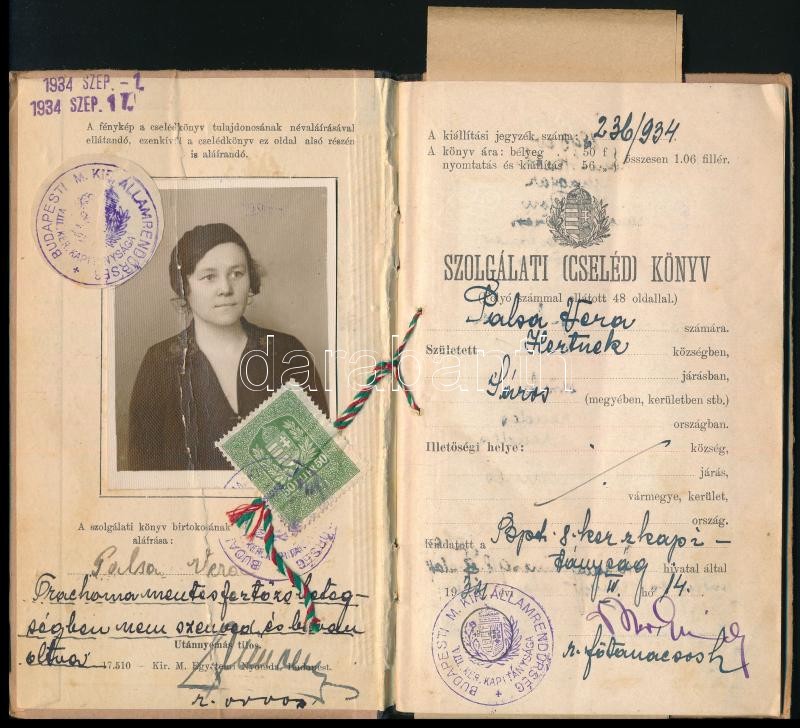 1934 SZEP. -1.
1934 SZEP. 17.
A fénykép a cselédkönyv tulajdonosának névaláírásával
ellátandó, ezenkívül a cselédkönyv ez oldal alsó részén
is aláírandó.
BUDAPESTI M. KIR. ÁLLAMRENDŐRSÉG
KER. KAPITÁNYSÁGA
50 50
A szolgálati könyv birtokosának
aláírása:
Palsa Vera
Trachoma mentes fertőző beteg-
ségben nem szenved, és be van
oltva
Utánnyomás tilos.
17.510 — Kir. M. Egyetemi Nyomda, Budapest.
r. orvos
A kiállítási jegyzék száma: 236/934.
A könyv ára: bélyeg . . 50 f
nyomtatás és kiállítás 56 „
összesen 1.06 fillér.
SZOLGÁLATI (CSELÉD) KÖNYV
(Folyó számmal ellátott 48 oldallal.)
Palsa Vera számára.
Született Hertnek községben,
járásban,
Sáros (megyében, kerületben stb.)
országban.
Illetőségi helye: község,
járás,
vármegye, kerület,
ország.
Kiadatott a Bpt. 8. ker. kapi-
tányság hivatal által
1934 évi IV. hó 14.
BUDAPESTI M. KIR. ÁLLAMRENDŐRSÉG
VIII. KER. KAPITÁNYSÁGA
r. főtanácsos h
darabanth